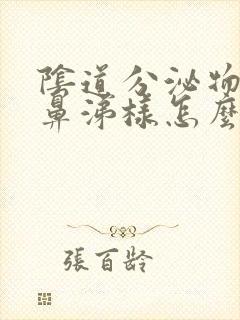 陰道分泌物
鼻涕樣怎麼
張百齡